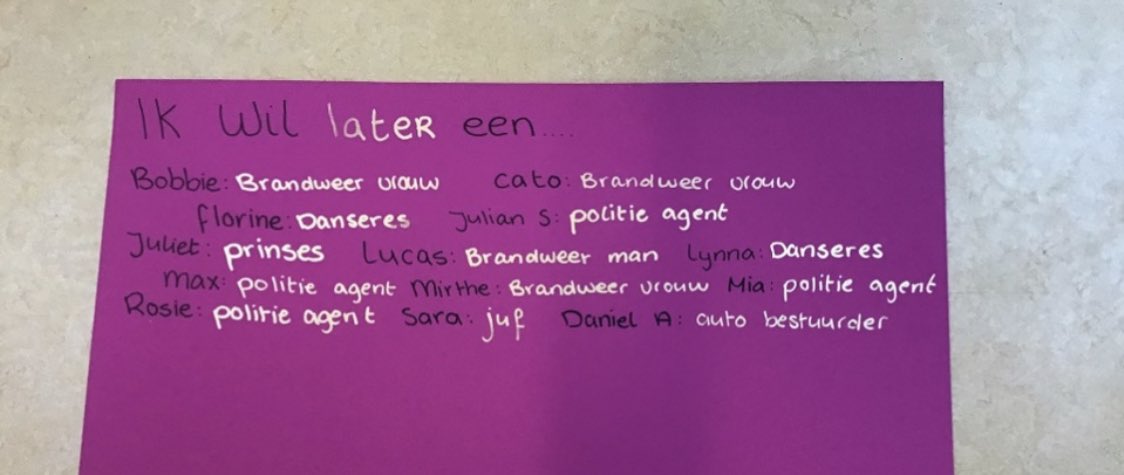 Ik wil later een....
Bobbie: Brandweer vrouw Cato: Brandweer vrouw
florine: Danseres Julian S: politie agent
Juliet: prinses Lucas: Brandweer man Lynna: Danseres
Max: politie agent Mirthe: Brandweer vrouw Mia: politie agent
Rosie: politie agent Sara: juf Daniel A: auto bestuurder